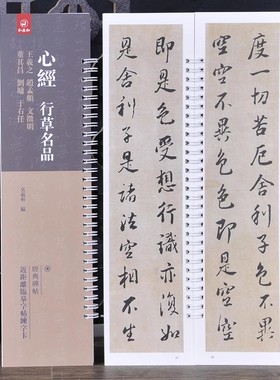 心經 行草名品
王羲之 趙孟頫 文徵明
董其昌 劉墉 于右任
編
經典碑帖
近距離臨摹字帖練字卡
度一切苦厄舍利子色不異
空空不異色色即是空空
即是色受想行識亦復如
是舍利子是諸法空相不生